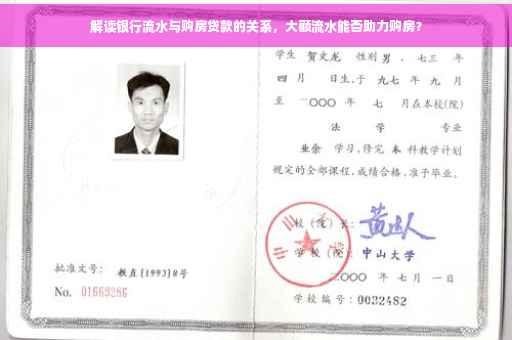 解读银行流水与购房贷款的关系，大额流水能否助力购房？
学生 贺文龙 性别 男 、七三 年
四 月 日生,于 九七 年 九 月
至 二〇〇〇 年 七 月在本校(院)
法 学 专业
业余 学习,修完 本 科教学计划
规定的全部课程,成绩合格,准予毕业。
校(院)长:
学校(院): 中山大学
二〇〇〇 年 七 月 一 日
批准文号: 教直[1993]8号
No. 01669286
学校编号: 0032482